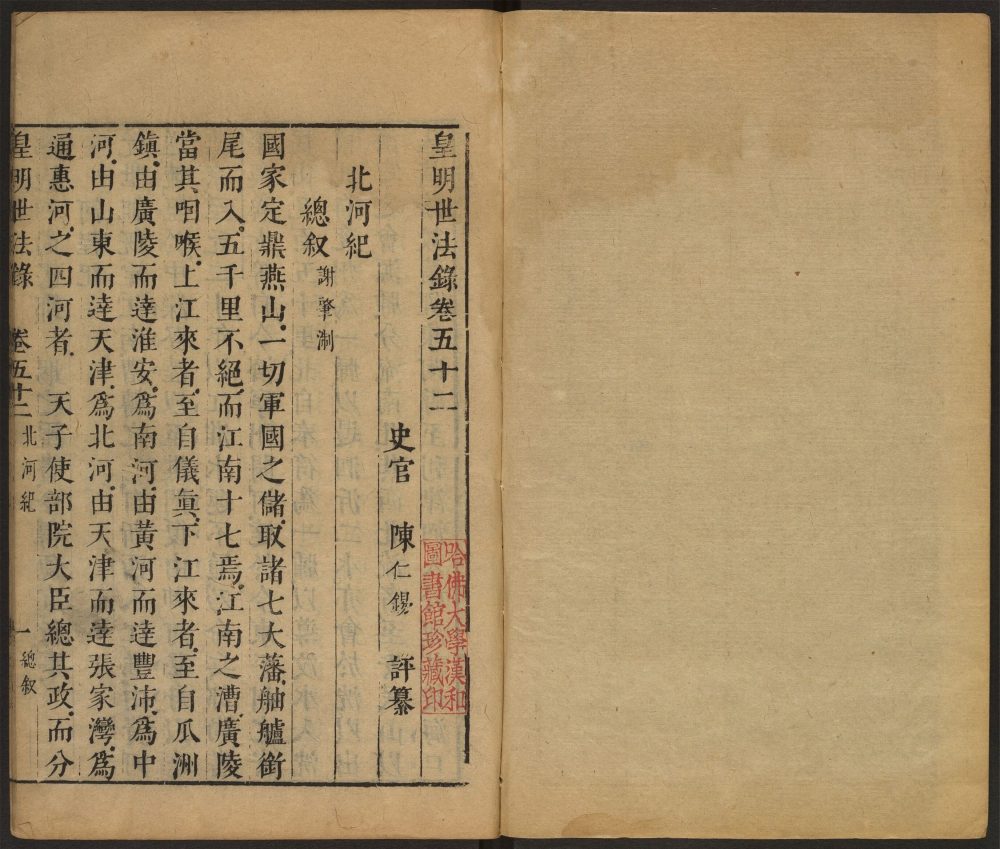 皇明世法錄卷五十二
史官 陳仁錫 評纂
哈佛大學漢和
圖書館珍藏印
北河紀
總叙 謝肇淛
國家定鼎燕山一切軍國之儲取諸七大藩舳艫銜
尾而入五千里不絕而江南十七焉江南之漕廣陵
當其咽喉上江來者至自儀眞下江來者至自瓜洲
鎮由廣陵而達淮安爲南河由黃河而達豐沛爲中
河由山東而達天津爲北河由天津而達張家灣爲
通惠河之四河者 天子使部院大臣總其政而分
皇明世法錄 卷五十二 北河紀 一 總叙